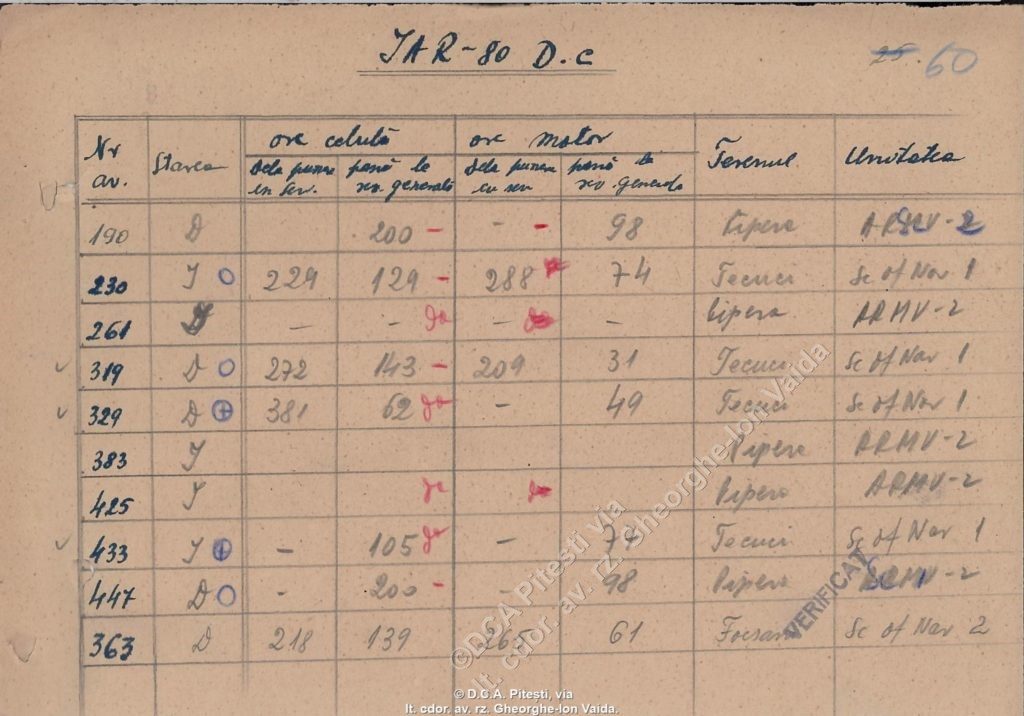 IAR-80 D.C
25. 60
Nr av. Starea ore celulă ore motor Terenul Unitatea
Dela punere in serv. pană la rev. generală Dela punere pană la rev. generală
190 D 200 - - - 98 Pipera 2
230 I O 229 129 - 288 74 Tecuci Sc of Nav 1
261 - - da - da - Pipera ARMV-2
319 D O 272 143 - 209 31 Tecuci Sc of Nav 1
329 D ⊕ 381 62 da - 49 Tecuci Sc of Nav 1
383 I Pipera ARMV-2
425 I da da Pipera ARMV-2
433 I ⊕ - 105 da - 77 Tecuci Sc of Nav 1
447 D O - 200 - - 98 Pipera
363 D 218 139 265 61 Focsani Sc of Nav 2
VERIFICAT
©D.C.A Pitești via
lt. cdor. av. rz. Gheorghe-Ion Vaida
© D.C.A. Pitești, via
lt. cdor. av. rz. Gheorghe-Ion Vaida.